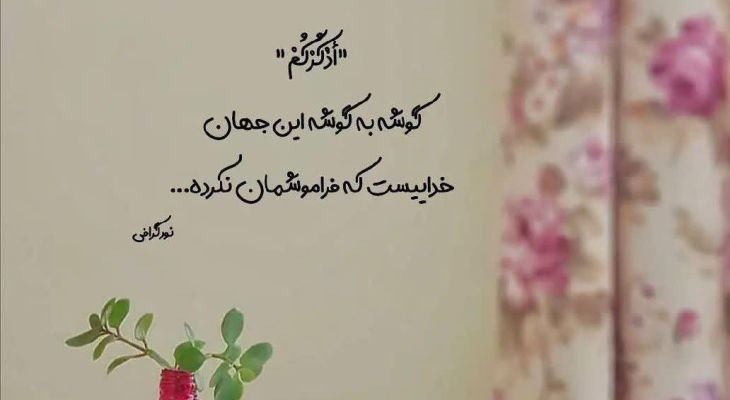 "أَذْكُرْكُمْ"
گوشه به گوشه این جهان
خداییست که فراموشمان نکرده...
نورگرافی